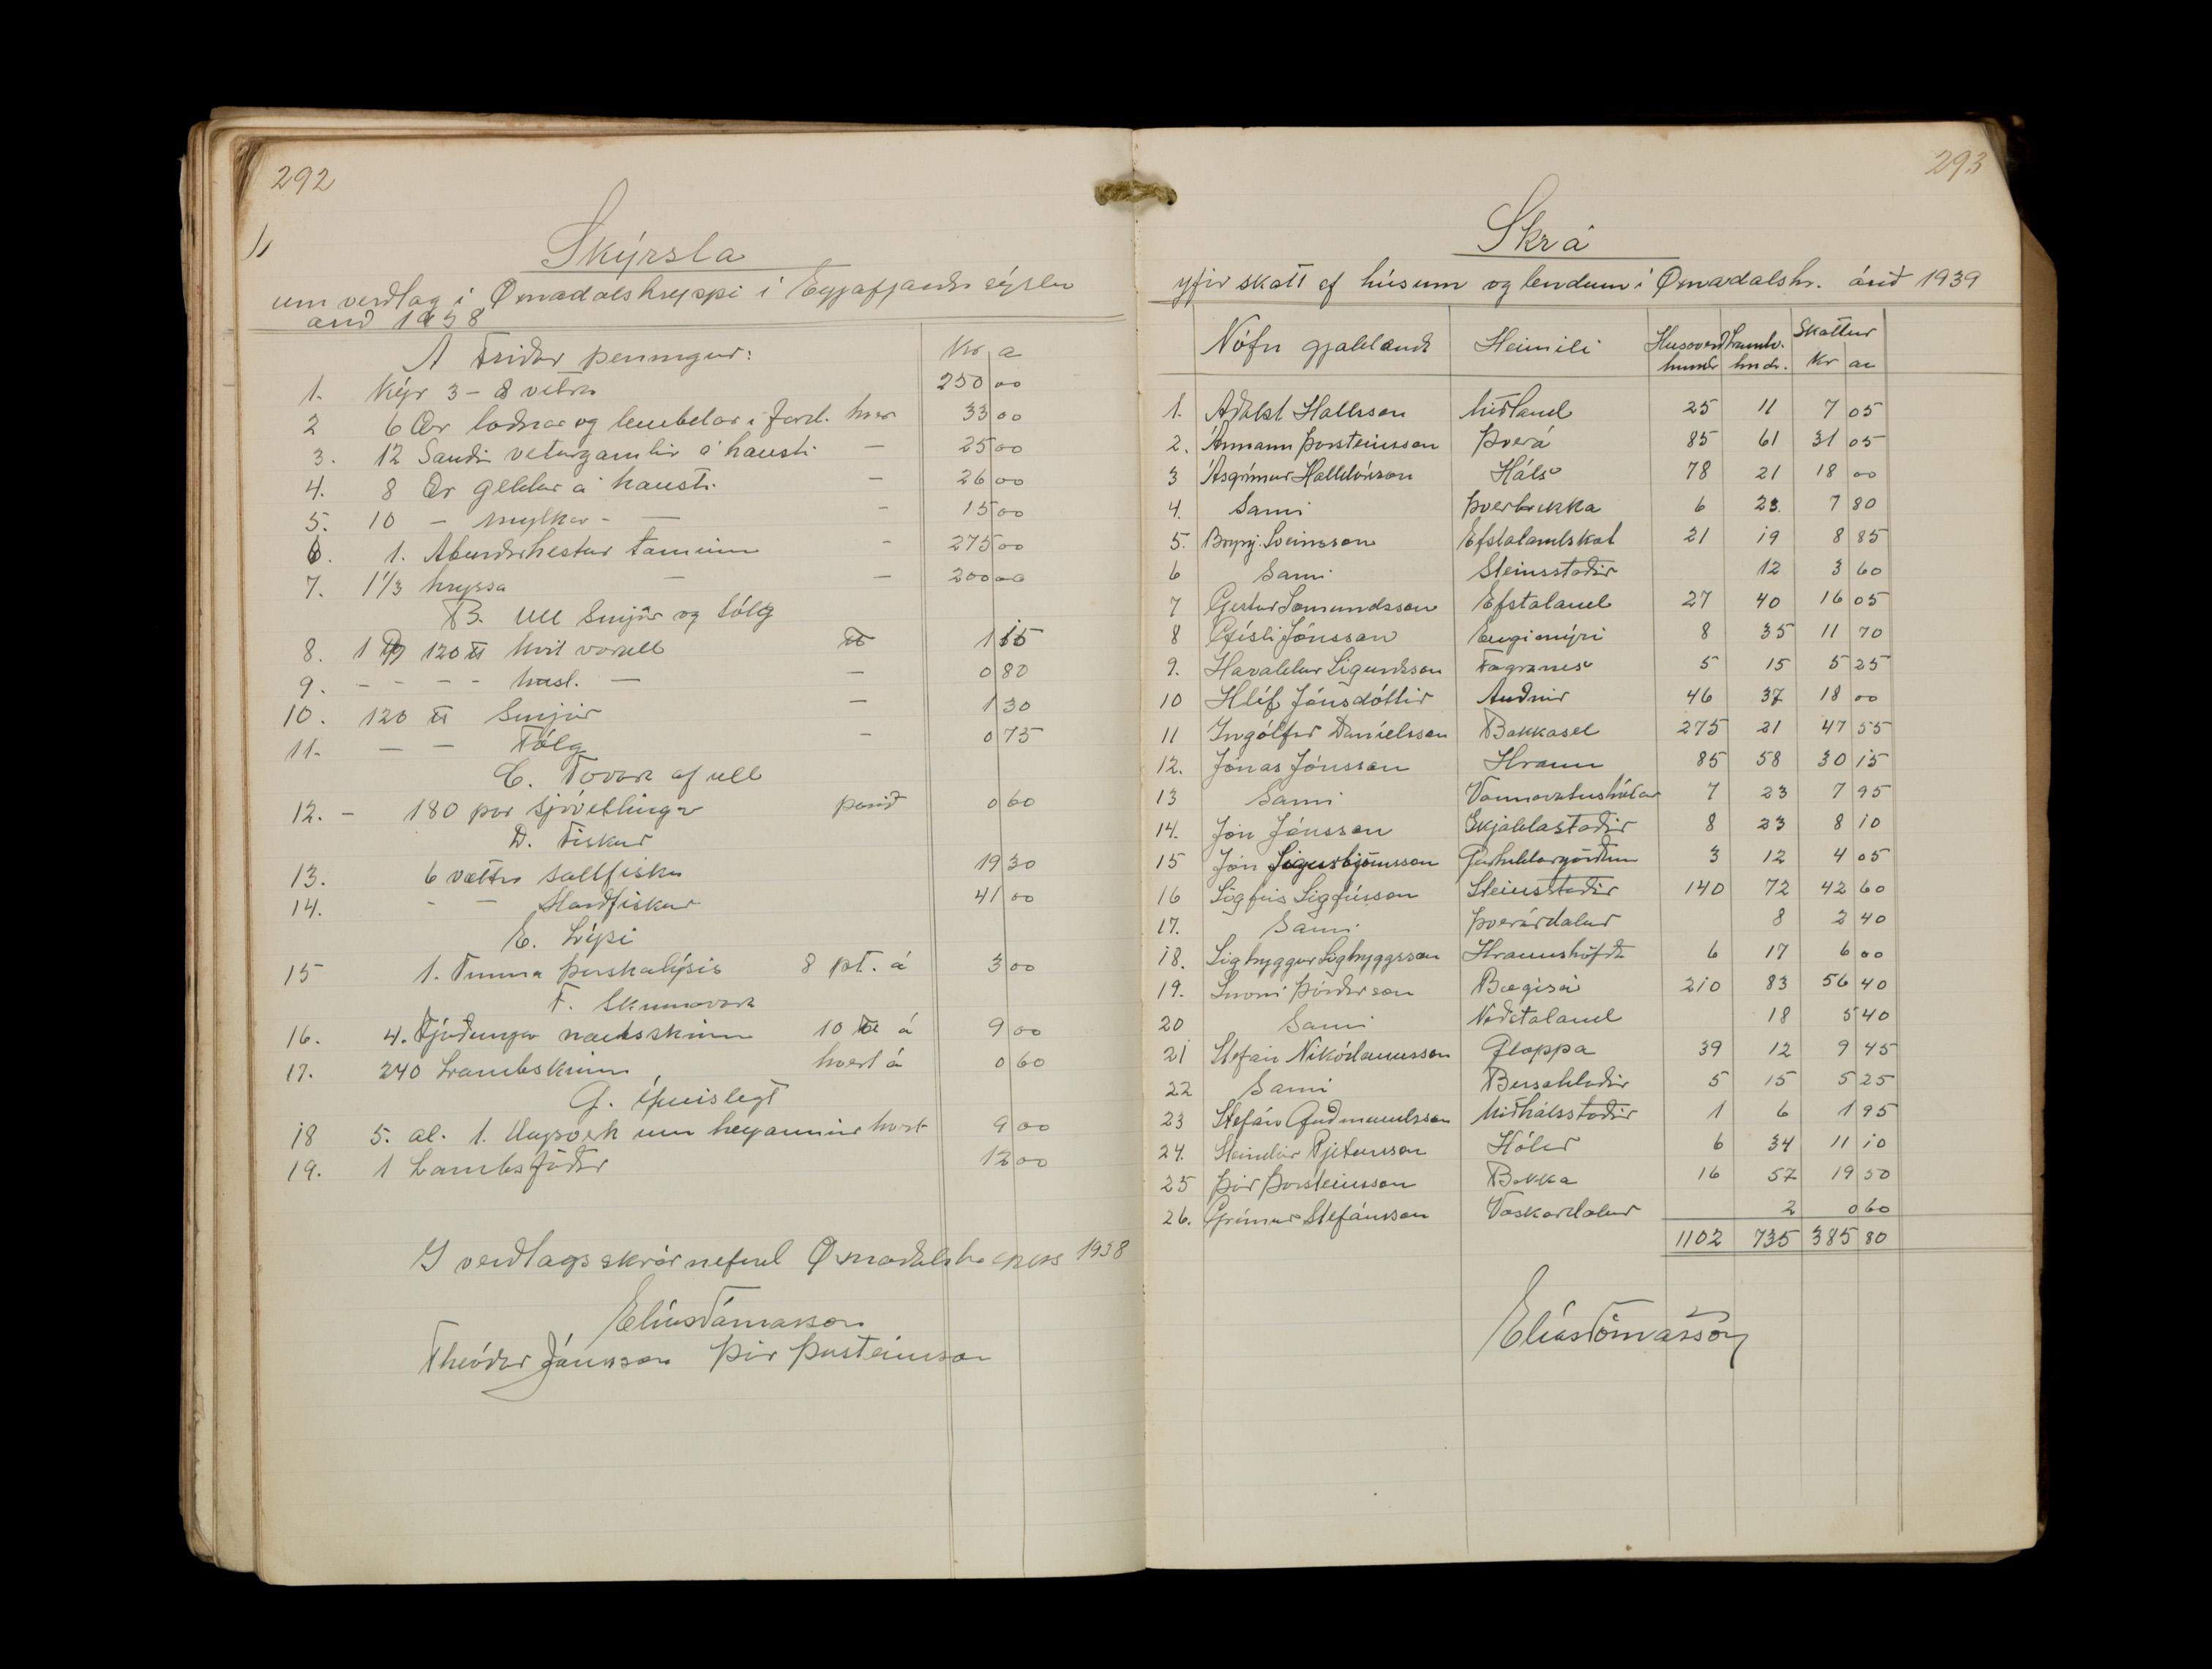 292
Skýrsla
um verðlag i Øxnadalshreppi i Eyjafjarðar sýslu
árið 1938
A Friðar peningur:
Kr a
1. Kýr 3 - 8 vetra 250 00
2 6 Ær loðnar og lembdar i fard. hver 33 00
3. 12 Sauðir veturgamlir á hausti - 25 00
4. 8 Ær geldar á hausti - 26 00
5. 10 - mylkar - - - 15 00
6. 1. Áburðrhestur taminn - 275 00
7. 1 1/3 hryssa - - 200 00
B. Ull Smjör og tólg
8. 1 120 ℔ hvit vorull ℔ 1 15
9. - - - - misl. - - 0 80
10. 120 ℔ Smjör - 1 30
11. - - Tólg - 0 75
C. Tovara af ull
12. - 180 pör sjóvetlingar parið 0 60
D. Fiskur
13. 6 vættir saltfiskur 19 30
14. - - Harðfiskur 41 00
E. Lýsi
15 1. Tunna þorskalýsis 8 pt. á 3 00
F. Skinnavara
16. 4. Fjórðungar nautsskinn 10 ℔ á 9 00
17. 240 Lambskinn hvert á 0 60
G. Ýmislegt
18 5. al. 1. Dagsverk um heyannir hvert 9 00
19. 1 Lambsfóður 12 00
I verðlagsskrárnefnd Øxnadalshrepps 1938
Elías Tómasson
Theódór Jónsson Þór Þorsteinsson
293
Skrá
yfir skatt af húsum og lendum i Øxnadalshr. árið 1939
Nöfn gjaldenda Heimili Húsaverð hundr Landv. hndr. Skattur Kr au
1. Aðalst Hallsson Miðland 25 11 7 05
2. Ármann Þorsteinsson Þverá 85 61 31 05
3 Ásgrímur Halldórsson Háls 78 21 18 00
4. Sami Þverbrekka 6 23. 7 80
5. Brynj. Sveinsson Efstalandskot 21 19 8 85
6 Sami Steinsstaðir 12 3 60
7 Gestur Sæmundsson Efstaland 27 40 16 05
8 Gísli Jónsson Engimýri 8 35 11 70
9. Haraldur Sigurðsson Fagranes 5 15 5 25
10 Hlíf Jónsdóttir Auðnir 46 37 18 00
11 Ingólfur Daníelsson Bakkasel 275 21 47 55
12. Jónas Jónsson Hraun 85 58 30 15
13 Sami Varmavatnshólar 7 23 7 95
14. Jón Jónsson Skjaldastaðir 8 23 8 10
15 Jón Sigurbjörnsson Geirhildargörðum 3 12 4 05
16 Sigfús Sigfússon Steinsstaðir 140 72 42 60
17. Sami Þverárdalur 8 2 40
18. Sigtryggur Sigtryggsson Hraunshöfða 6 17 6 00
19. Snorri Þórðarson Bægisá 210 83 56 40
20 Sami Neðstaland 18 5 40
21 Stefán Nikódemusson Gloppa 39 12 9 45
22 Sami Bessahlaðir 5 15 5 25
23 Stefán Guðmundsson Miðhálsstaðir 1 6 1 95
24. Steindór Pjetursson Hólar 6 34 11 10
25 Þór Þorsteinsson Bakka 16 57 19 50
26. Grímur Stefánsson Vaskárdalur 2 0 60
1102 735 385 80
Elías Tómasson